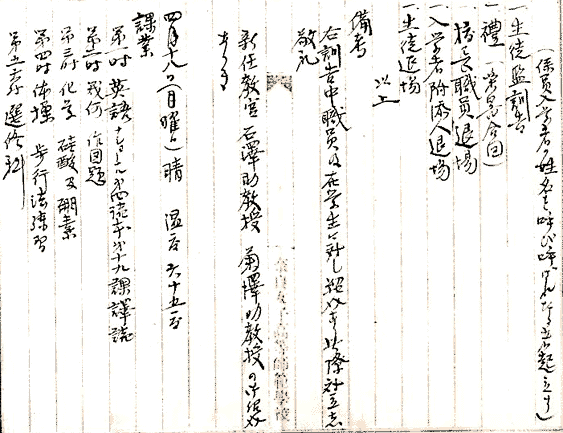 (係員入学者ノ姓名を呼び呼ばれたる者は起立す)
一生徒監訓告
一禮
校長職員退場
一入学者附添人退場
一生徒退場
以上
備考
右訓告中職員及在学生に対し紹介す此際対立
敬礼
新任教官石澤助教授 菊澤助教授の御紹介
あり
四月九日(日曜日) 晴 温度六十五度
課業
第一時 英語 ナショナル 読本第十九課譯読
第二時 幾何 作図題
第三時 化学 硅酸及硼素
第四時 体操 歩行法練習
第五時 選修科
奈良女子高等師範学校